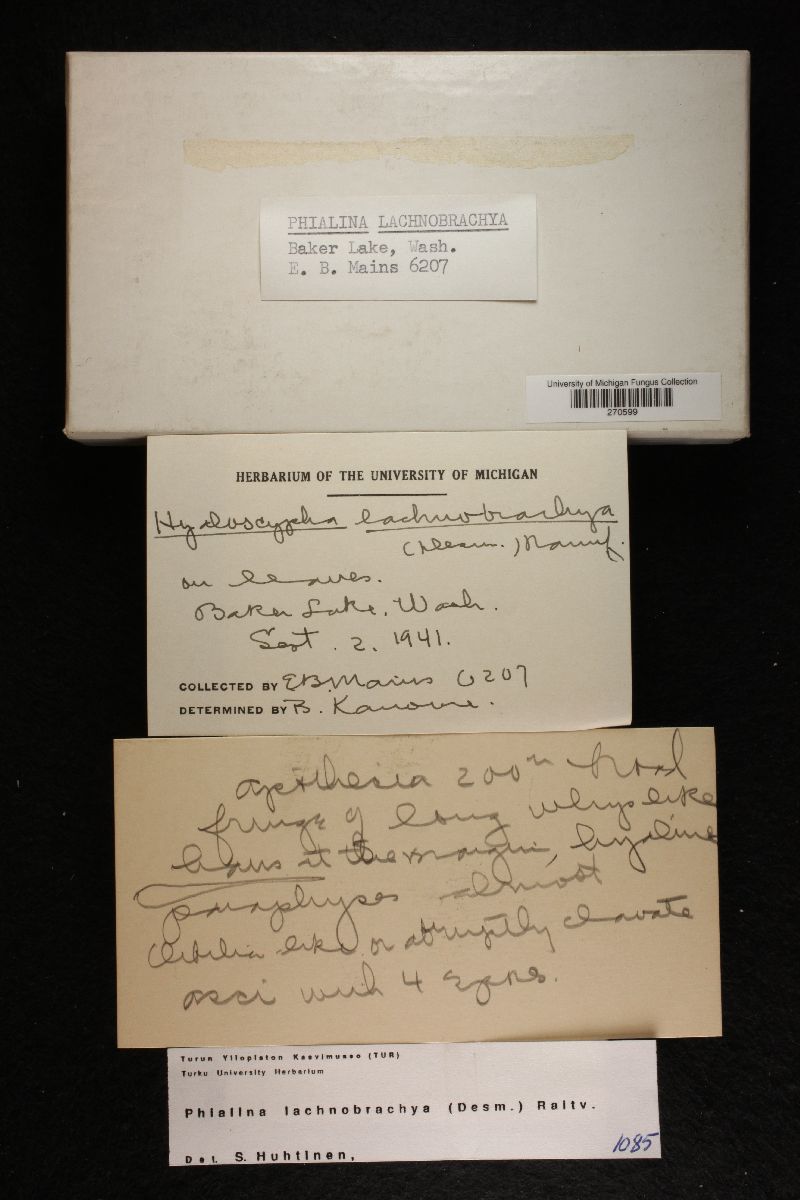 PHIALINA LACHNOBRACHYA
Baker Lake, Wash.
E. B. Mains 6207
University of Michigan Fungus Collection
270599
HERBARIUM OF THE UNIVERSITY OF MICHIGAN
Hyaloscypha lachnobrachya
(Desm.) Nannf.
on leaves.
Baker Lake, Wash.
Sept. 2, 1941.
COLLECTED BY E.B. Mains 6207
DETERMINED BY B. Kanouse.
apothecia 200
fringe of long whip like
hairs at the margin, hyaline
paraphyses almost
like or abruptly clavate
asci with 4 spores.
Turun Yliopiston Kasvimuseo (TUR)
Turku University Herbarium
Phialina lachnobrachya (Desm.) Raitv.
Det. S. Huhtinen,
1085